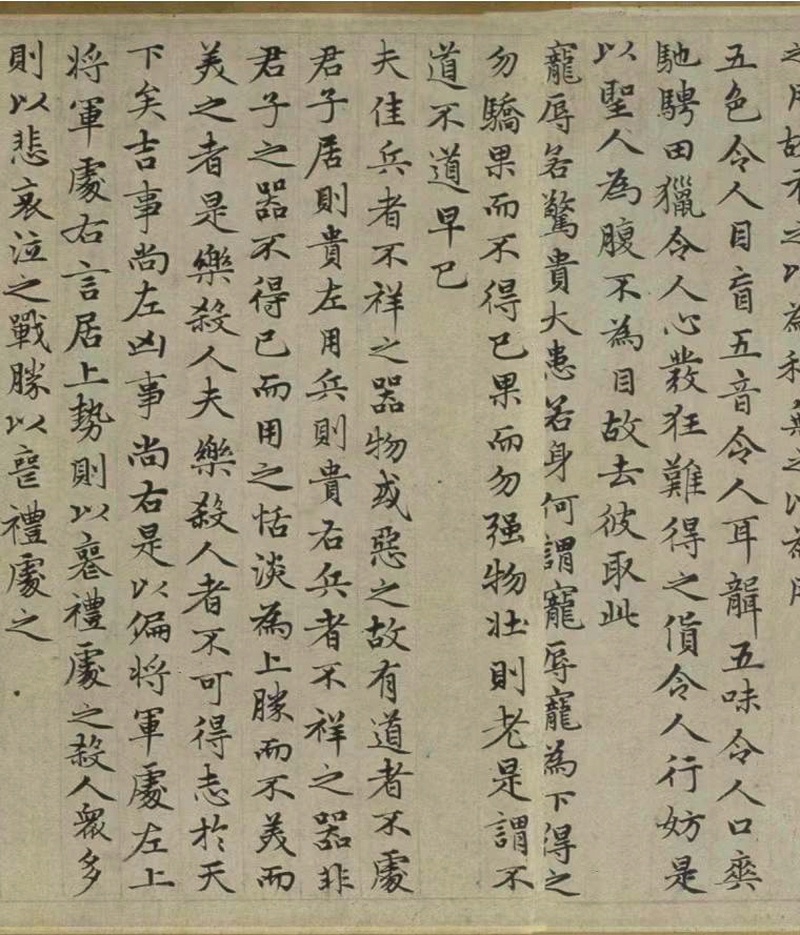 之用故有之以為利無之以為用
五色令人目盲五音令人耳聾五味令人口爽
馳騁田獵令人心發狂難得之貨令人行妨是
以聖人為腹不為目故去彼取此
寵辱若驚貴大患若身何謂寵辱寵為下得之
勿驕果而不得已果而勿强物壯則老是謂不
道不道早已
夫佳兵者不祥之器物或惡之故有道者不處
君子居則貴左用兵則貴右兵者不祥之器非
君子之器不得已而用之恬淡為上勝而不美而
美之者是樂殺人夫樂殺人者不可得志於天
下矣吉事尚左凶事尚右是以偏將軍處左上
將軍處右言居上勢則以喪禮處之殺人眾多
則以悲哀泣之戰勝以喪禮處之